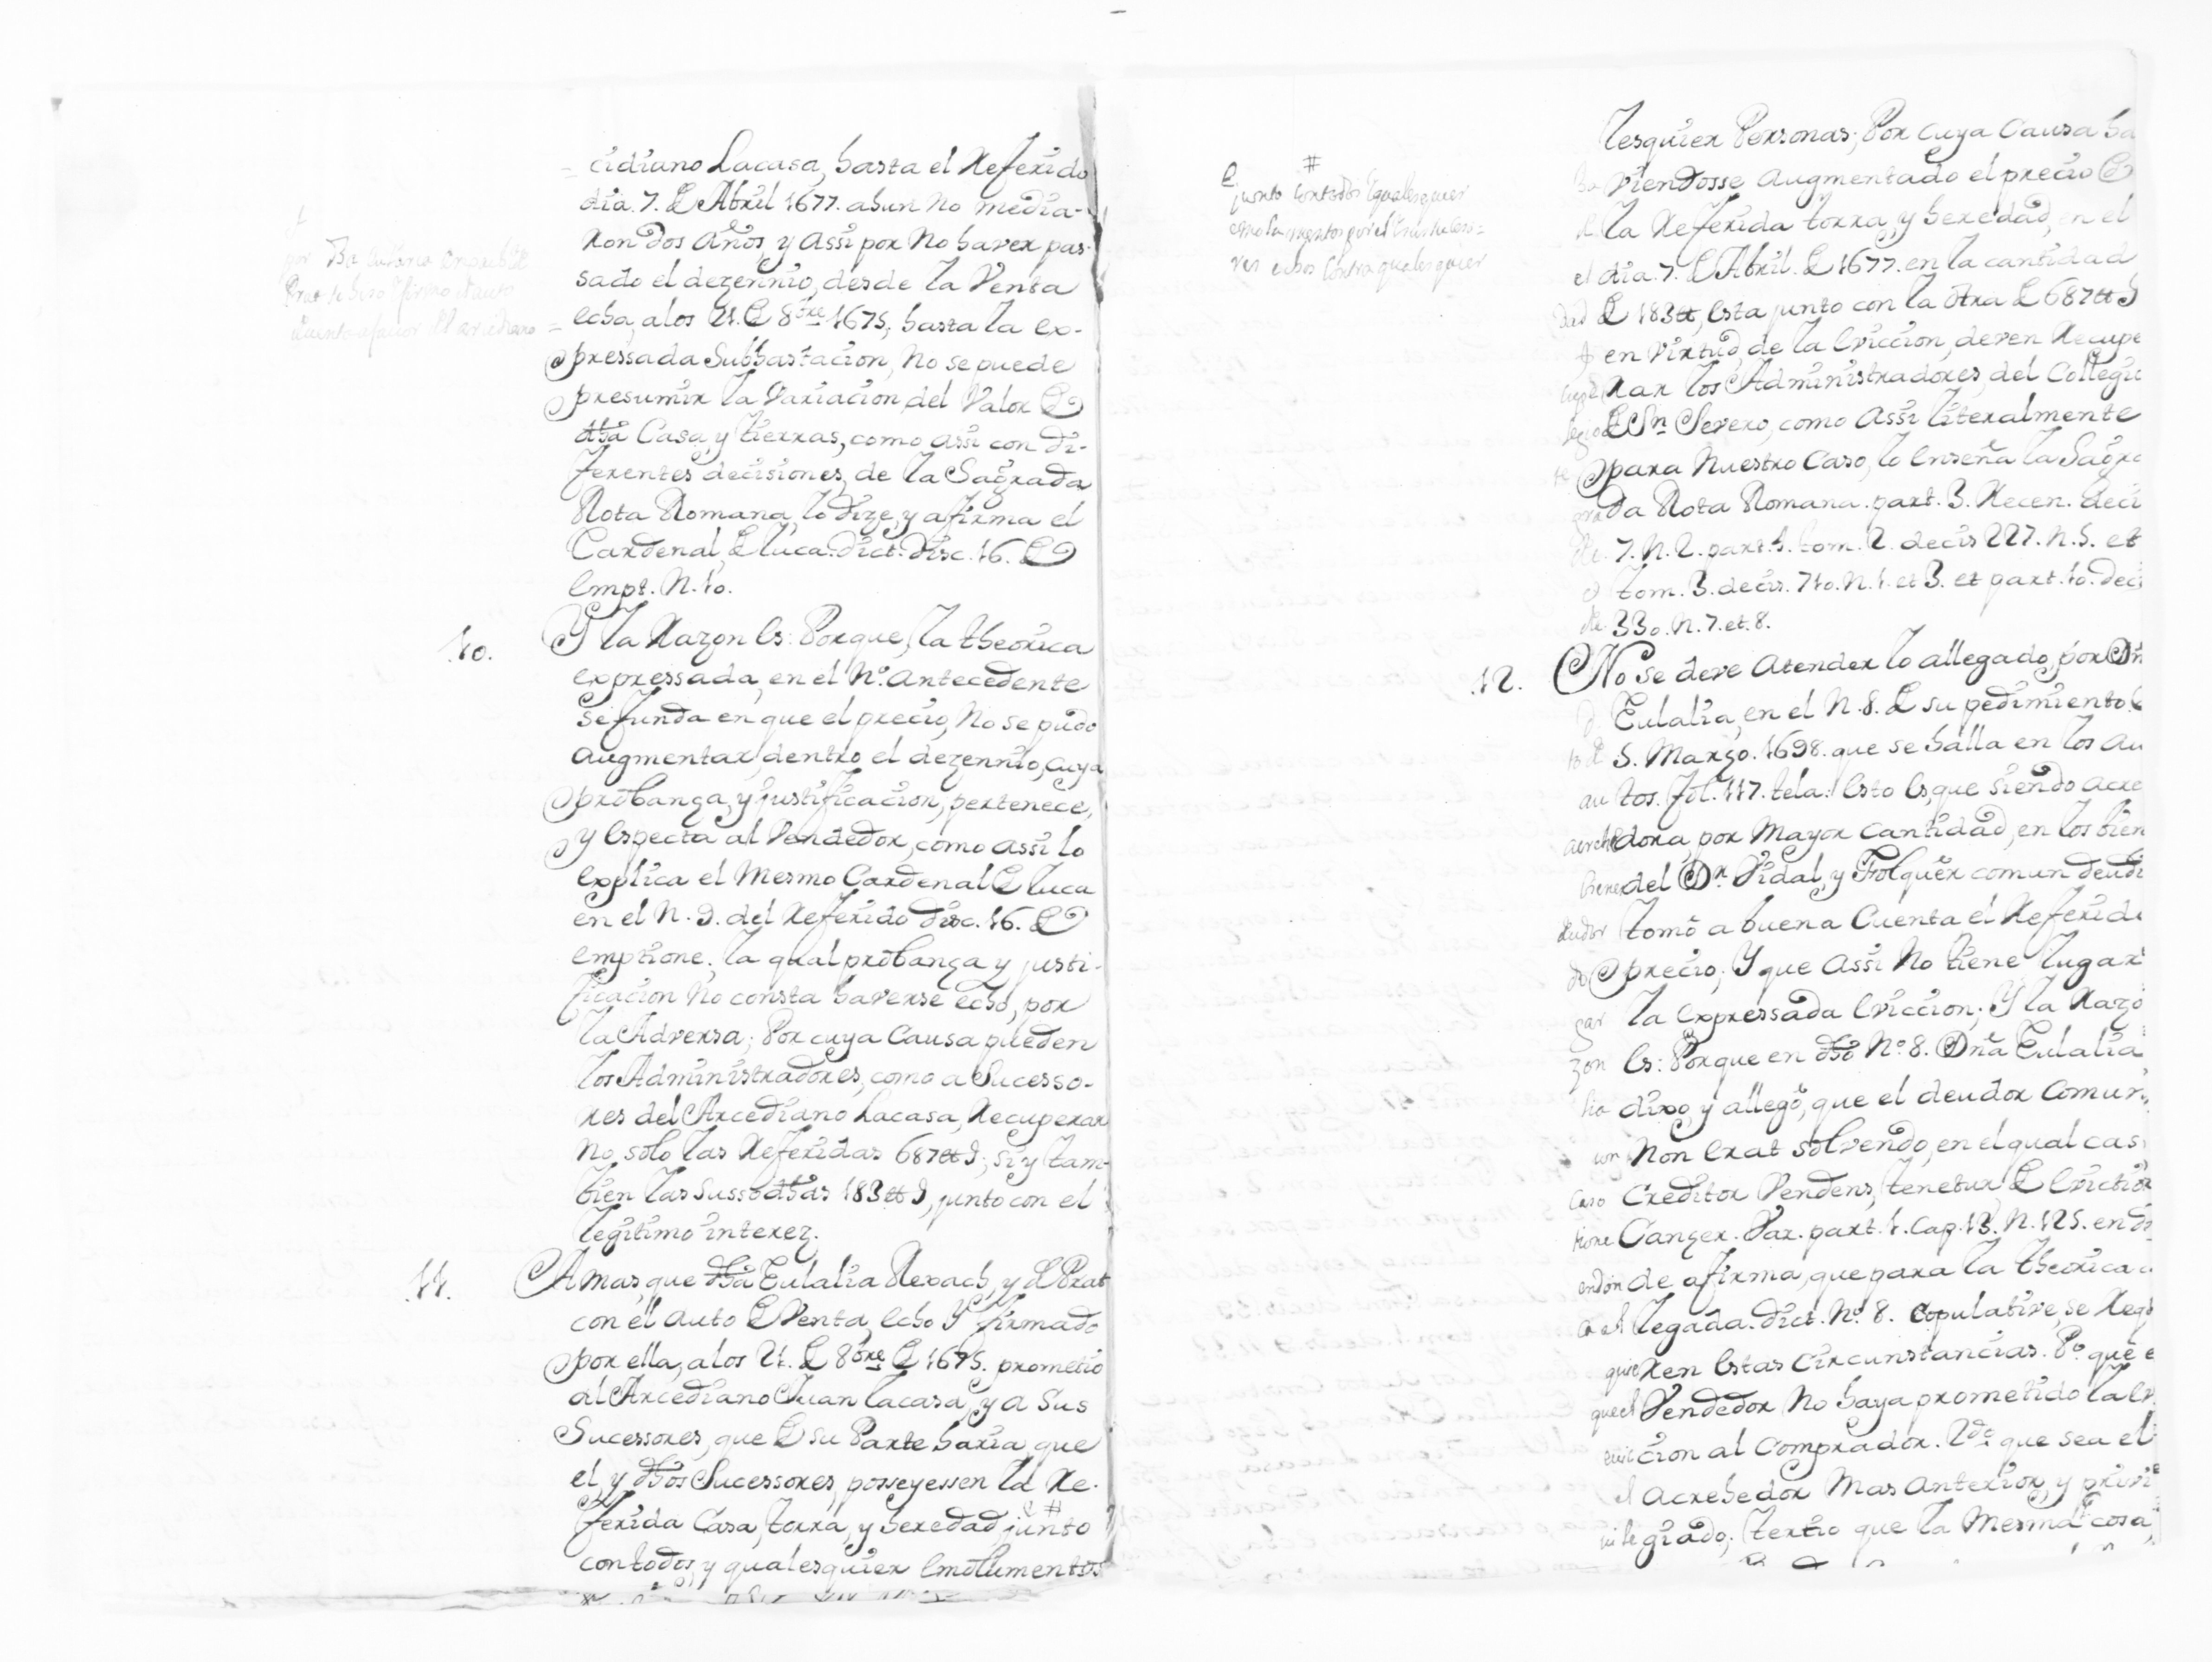 cidiano Lacasa, hasta el Referido
dia. 7. de Abril 1677. ahun No media-
ron dos Años, y Assi por No haver pas-
sado el dezennio, desde la Venta
echa, alos 21. de 8bre 1675, hasta la ex-
pressada Subhastacion, No se puede
presumir la Variacion, del Valor de
dha Casa, y tierras, como assi con di-
ferentes decisiones, de la Sagrada
Rota Romana, lo dize, y afirma el
Cardenal, de Luca. dict. disc. 16. de
Empt. N. 10.
.10. Y la Razon Es: Porque, la theorica
expressada, en el No. Antecedente
se funda en que el precio, No se pudo
augmentar, dentro el dezennio, cuya
probanza, y justificacion, pertenece,
y Especta al Vendedor, como assi lo
explica el Mesmo Cardenal de Luca
en el N. 9. del Referido disc. 16. de
emptione. la qual probanza y justi-
ficacion No consta haverse echo, por
la Adversa; Por cuya Causa pueden
los Administradores, como a Sucesso-
res del Arcediano Lacasa, Recuperar
No, solo las Referidas 687 tt S, si y tam-
bien las Sussodhas 183 tt S, junto con el
legitimo interez.
.11. A mas, que dha Eulalia Rexach, y de Prat
con el Auto de Venta, echo Y firmado
por ella, alos 21. de 8bre de 1675. prometio
al Arcediano Juan Lacasa, y a Sus
Sucessores, que de su Parte haria, que
el, y dhos Sucessores, posseyessen la Re-
ferida Casa, torra, y heredad, junto
con todos, y qualesquier Emolumentos
#
junto con todos y qualesquier
emolumentos
contra qualesquier
lesquier Personas; Por cuya Causa ha
viendosse augmentado el precio de
la Referida torra, y heredad, en el
el dia. 7. de Abril. de 1677. en la cantidad
de 183 tt, Esta junto con la otra de 687 tt S
en virtud, de la Eviccion, deven Recupe
rar los Administradores, del Collegio
de Sn Severo, como Assi literalmente
para Nuestro Caso, lo Enseña la Sagra
da Rota Romana. part. 3. Recen. deci
7. N. 2. part. 4. tom. 2. decis 227. N. 5. et
tom. 3. decis. 710. N. 1. et 3. et part. 10. deci
330. N. 7. et. 8.
.12. No se deve Atender lo allegado, por Dña
Eulalia, en el N. 8. de su pedimiento
5. Marzo. 1698. que se halla en los Au
tos. fol. 117. tela. Esto Es, que siendo Acre
dora, por Mayor Cantidad, en los bien
del Dr. Vidal, y Folquer comun deud
tomò a buena Cuenta el Referido
precio; Y que Assi No tiene lugar
la Expressada Eviccion; Y la Razo
zon Es: Porque en dho No 8. Dña Eulalia
dixo, y allegò, que el deudor Comun
Non Erat Solvendo, en el qual cas
caso Creditor Vendens, tenetur de Eviction
Canzer. Var. part. 1. Cap. 13. N. 125. en do
de afirma, que para la theorica
llegada. dict. No. 8. Copulative, se Req
ren Estas circunstancias. Po. que e
que el Vendedor No haya prometido la Ev
cion al Comprador. 2do. que sea el
el Acrehedor Mas Anterior, y privi
vilegiado; tertio que la Mesma cosa